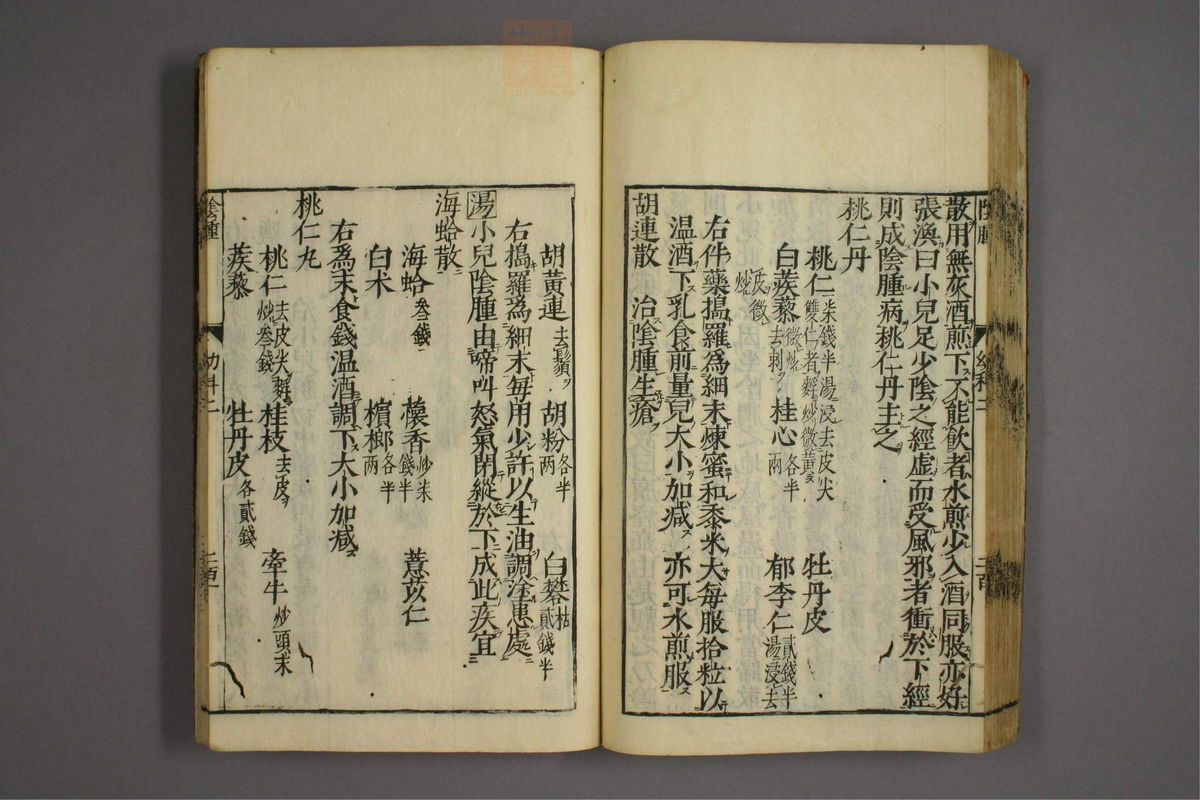 散用無灰酒煎下不能飲者水煎少入酒同服亦好
張渙曰小兒足少陰之經虛而受風邪者衝於下經
則成陰腫病桃仁丹主之
桃仁丹
桃仁柒錢半湯浸去皮尖雙仁者麩炒微黃 牡丹皮
白蒺藜微炒去刺 桂心各半兩 郁李仁貳錢半湯浸去
皮微炒
右件藥搗羅爲細末煉蜜和黍米大每服拾粒以
温酒下乳食前量兒大小加减 亦可水煎服
胡連散 治陰腫生瘡
胡黃連去鬚 胡粉各半兩 白礬枯貳錢半
右搗羅爲細末每用少許以生油調塗患處
湯小兒陰腫由啼叫怒氣閉縱於下成此疾宜
海蛤散
海蛤叁錢 蘹香炒柒錢半 薏苡仁
白朮 檳榔各半兩
右爲末食錢温酒調下大小加减
桃仁丸
桃仁去皮尖麩炒叁錢 桂枝去皮 牽牛炒頭末
蒺藜 牡丹皮各貳錢
陰腫 幼科二 二百一